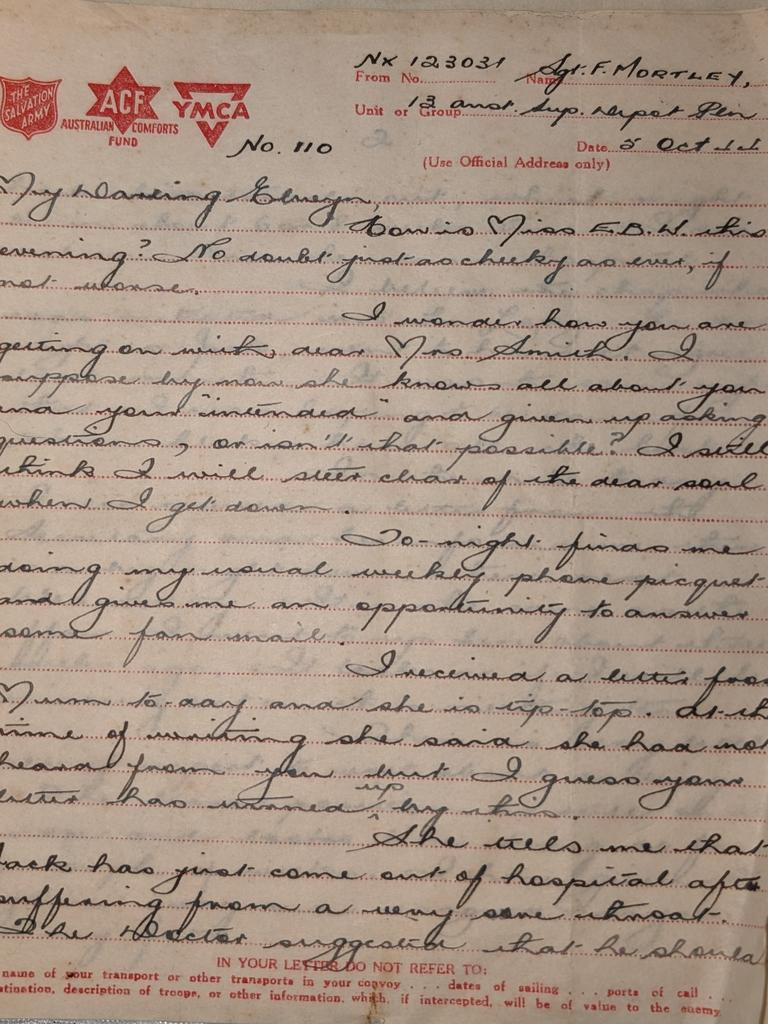 THE SALVATION ARMY
ACF
AUSTRALIAN COMFORTS FUND
YMCA
No. 110
From No. NX 123031 Name Sgt. F. MORTLEY,
Unit or Group 13 Aust. Sup. Depot Pln
Date 5 Oct 44
(Use Official Address only)
My Darling Elwyn,
How is Miss E.B.W. this
evening? No doubt just as cheeky as ever, if
not worse.
I wonder how you are
getting on with, dear Mrs. Smith. I
suppose by now she knows all about you
and your "intended" and given up asking
questions, or isn't that possible? I still
think I will steer clear of the dear soul
when I get down.
To-night finds me
doing my usual weekly phone picquet
and gives me an opportunity to answer
some fan mail.
I received a letter from
Mum to-day and she is tip-top. At th
time of writing she said she had not
heard from you but I guess your
letter has turned up by this.
She tells me that
Jack has just come out of hospital after
suffering from a very sore throat.
The Doctor suggested that he should
IN YOUR LETTER DO NOT REFER TO:
name of your transport or other transports in your convoy . . . dates of sailing . . . ports of call . . .
stination, description of troops, or other information, which, if intercepted, will be of value to the enemy